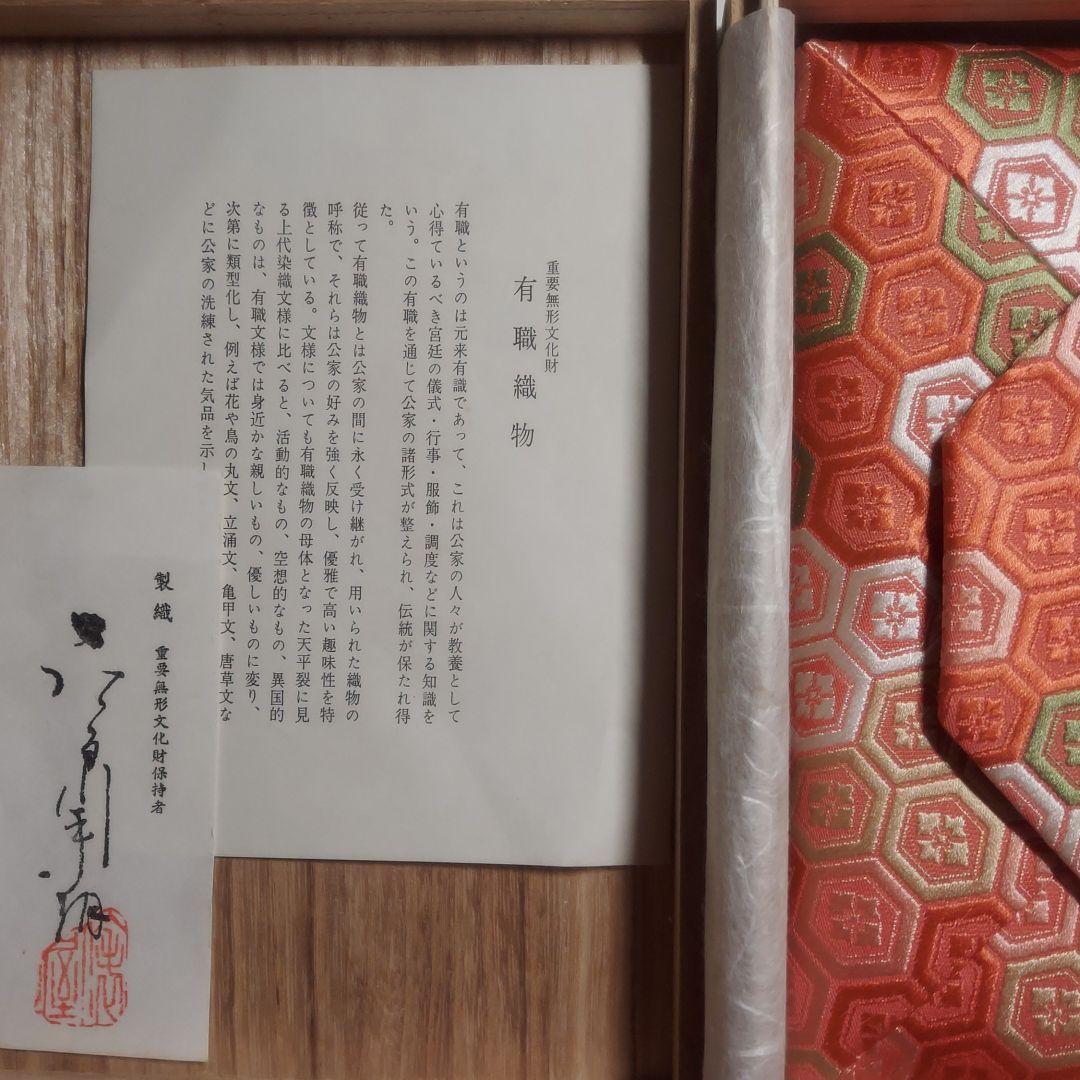 重要無形文化財
有職織物
有職というのは元来有識であって、これは公家の人々が教養として
心得ているべき宮廷の儀式・行事・服飾・調度などに関する知識を
いう。この有職を通じて公家の諸形式が整えられ、伝統が保たれ得
た。
従って有職織物とは公家の間に永く受け継がれ、用いられた織物の
呼称で、それらは公家の好みを強く反映し、優雅で高い趣味性を特
徴としている。文様についても有職織物の母体となった天平裂に見
る上代染織文様に比べると、活動的なもの、空想的なもの、異国的
なものは、有職文様では身近かな親しいもの、優しいものに変り、
次第に類型化し、例えば花や鳥の丸文、立涌文、亀甲文、唐草文な
どに公家の洗練された気品を示し
製織 重要無形文化財保持者